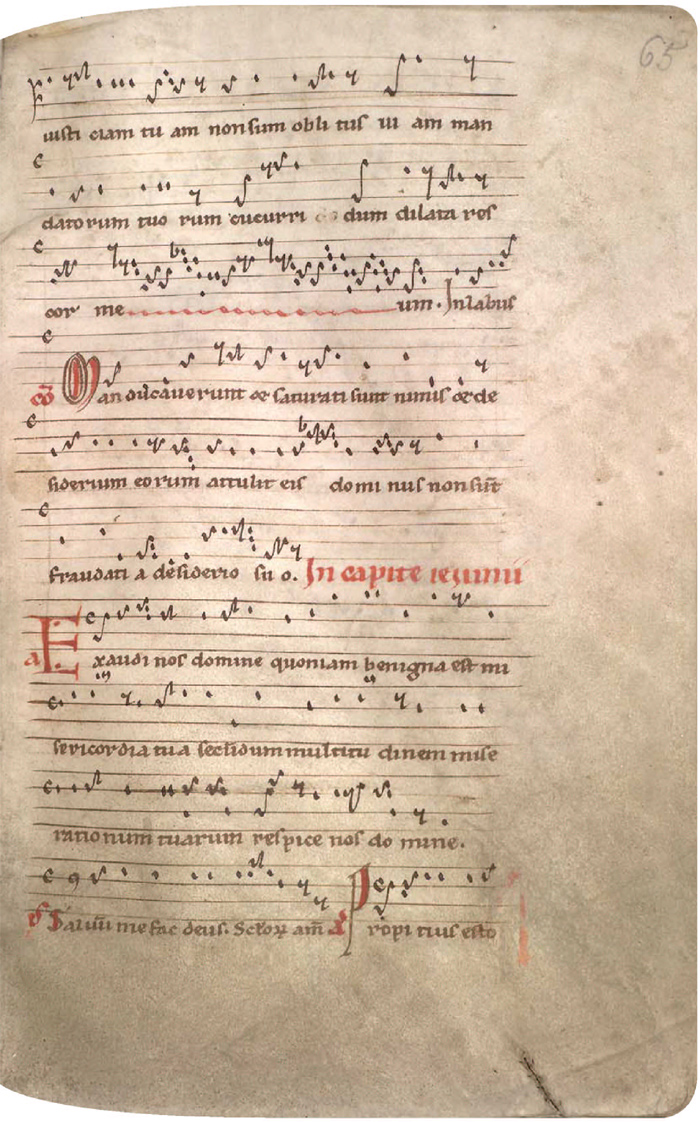 65
iusti ciam tu am non sum obli tus ui am man
datorum tuo rum cucurri dum dilata res
cor me um. In labiis
co Manducauerunt & saturati sunt nimis & de
siderium eorum attulit eis domi nus non sūt
fraudati a desiderio su o. In capite ieiunii
a Exaudi nos domine quoniam benigna est mi
sericordia tua secūdum multitu dinem mise
rationum tuarum respice nos do mine.
Saluū me fac deus. Sclorꝝ am̄ Propi tius esto